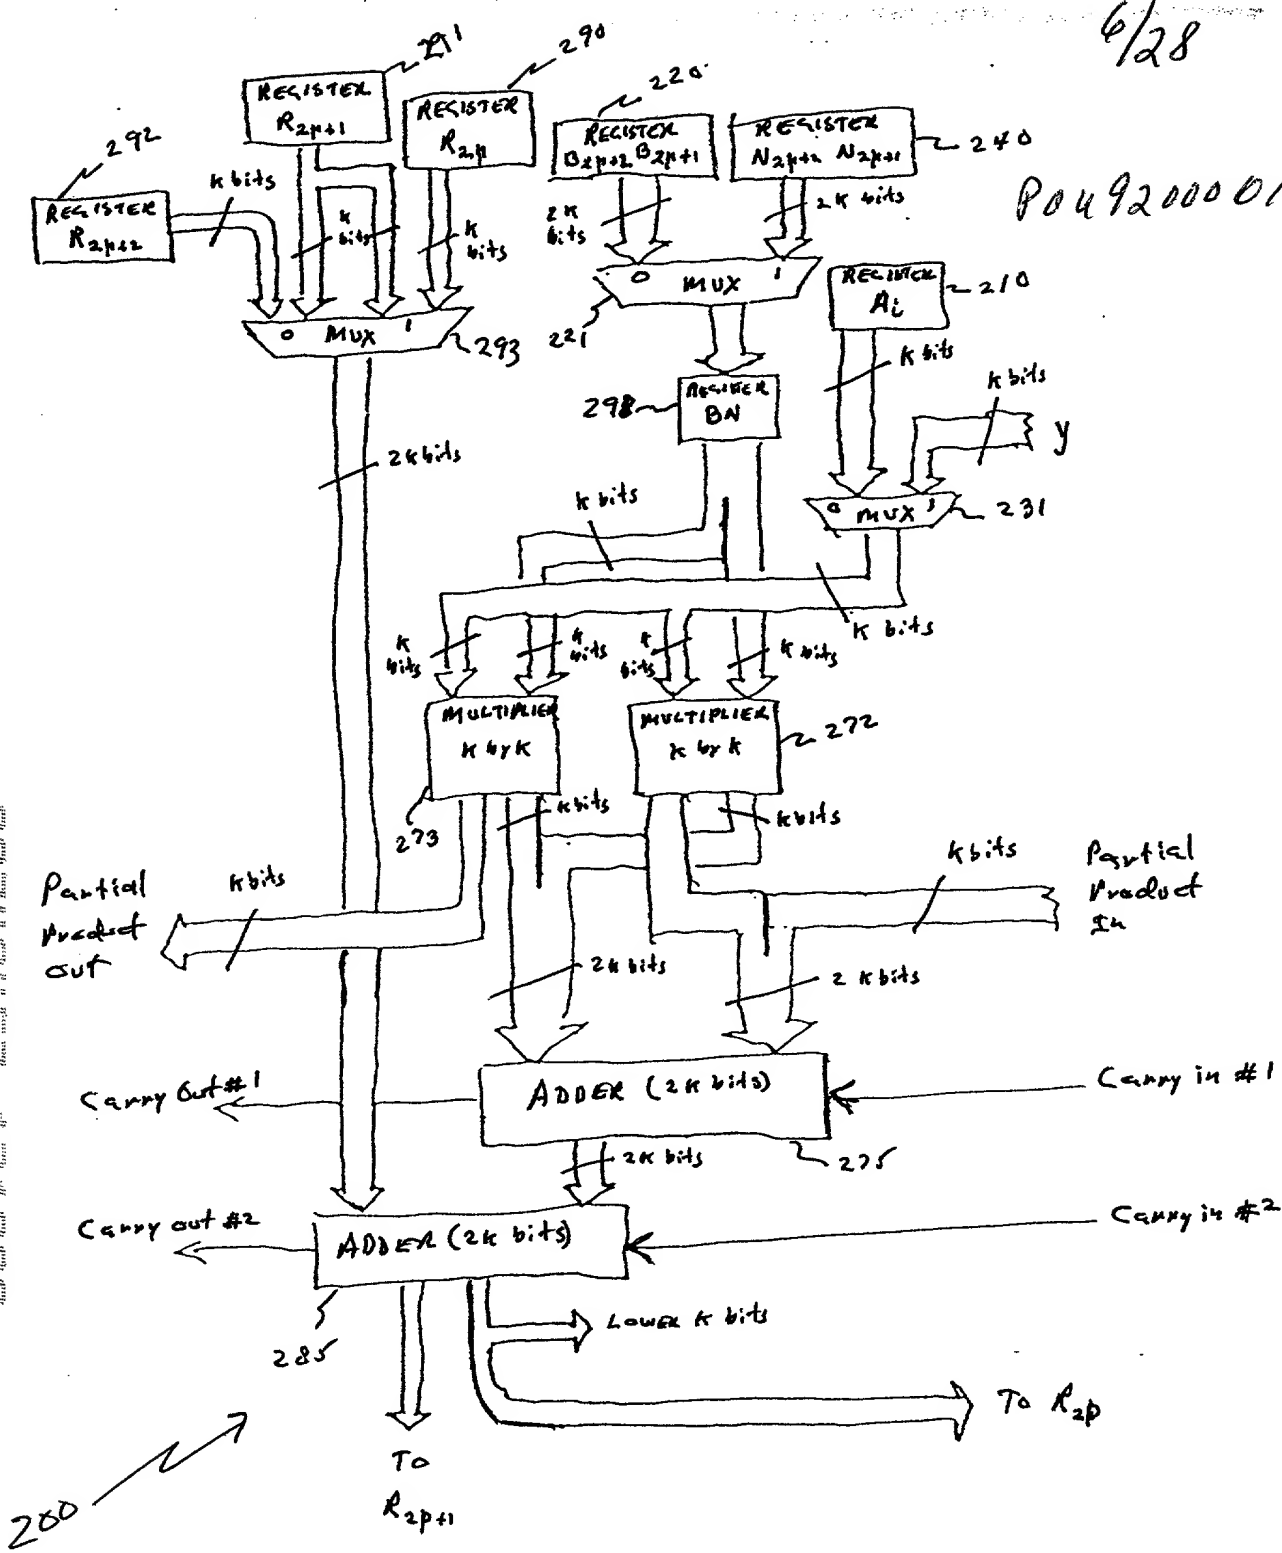 6/28
291
290
220
REGISTER
R2p+1
REGISTER
R2p
REGISTER
B2p+2 B2p+1
REGISTER
N2p+2 N2p+1
240
292
P0U9200001
REGISTER
R2p+2
K bits
K bits
K bits
2K bits
2K bits
0 MUX 1
293
0 MUX 1
221
REGISTER
Ai
210
K bits
K bits
y
298
REGISTER
BN
2K bits
K bits
0 MUX 1
231
K bits
K bits
K bits
K bits
K bits
MULTIPLIER
K by K
273
MULTIPLIER
K by K
272
K bits
K bits
Partial
Product
out
K bits
K bits
Partial
Product
In
2K bits
2 K bits
Carry Out #1
ADDER (2K bits)
Carry in #1
275
2K bits
Carry out #2
ADDER (2K bits)
Carry in #2
285
LOWER K bits
To R2p
To
R2p+1
200